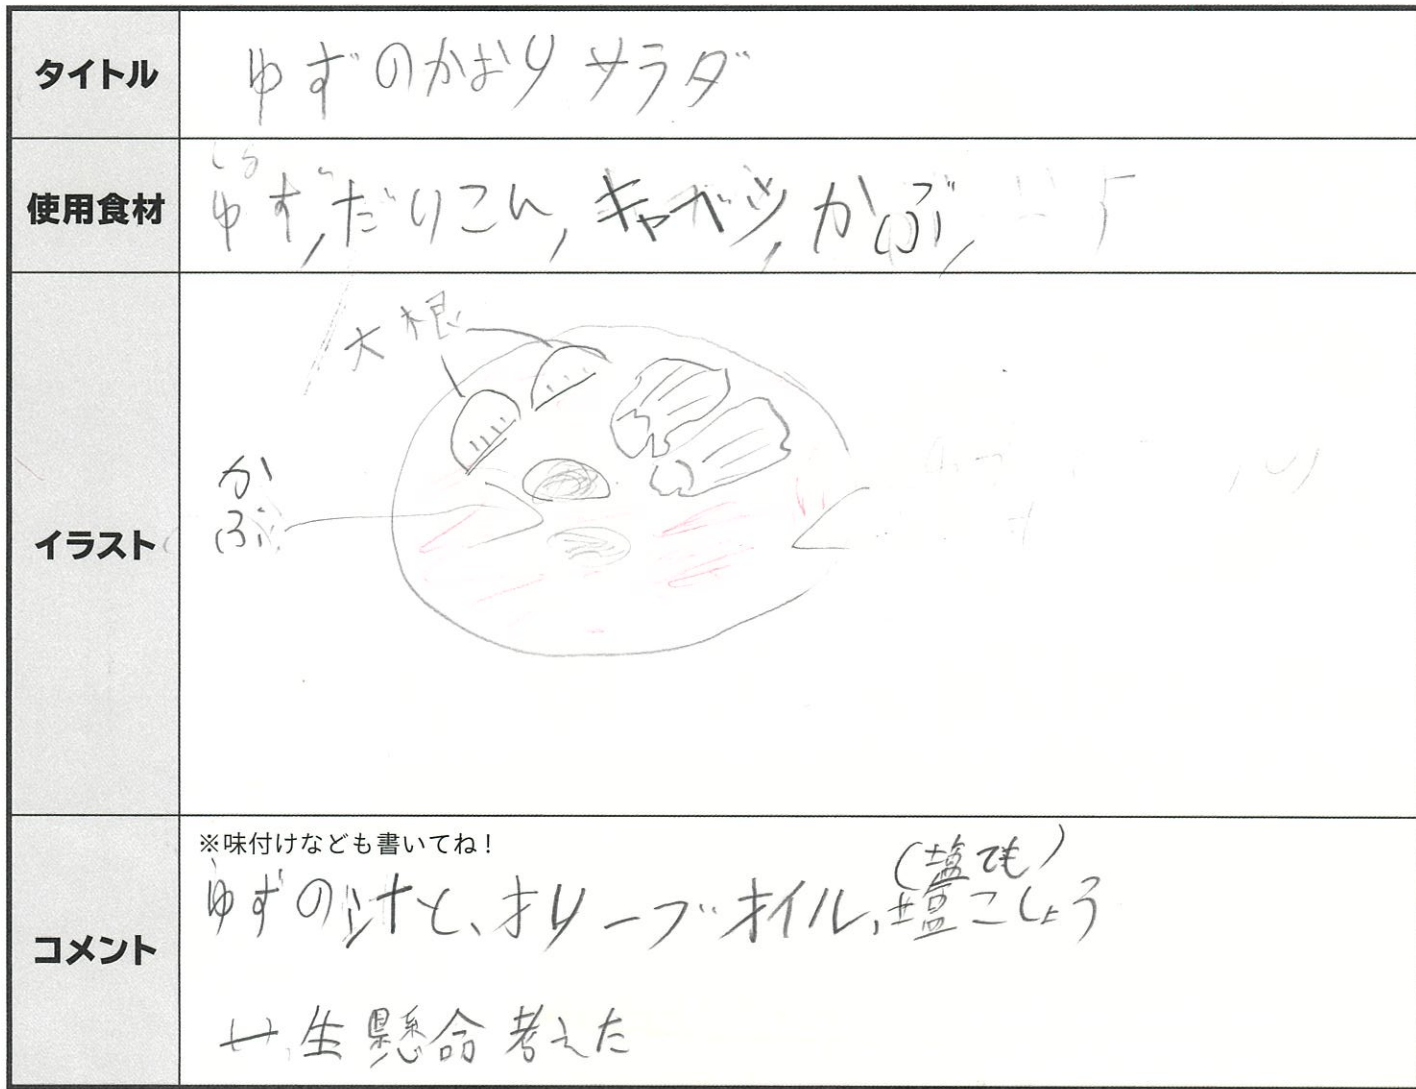 タイトル
ゆずのかおりサラダ
使用食材
ゆず,だいこん,キャベツ,かぶ,
イラスト
大根
かぶ
コメント
※味付けなども書いてね!
(塩でも)
ゆずの汁と、オリーブオイル,塩こしょう
一生懸命考えた